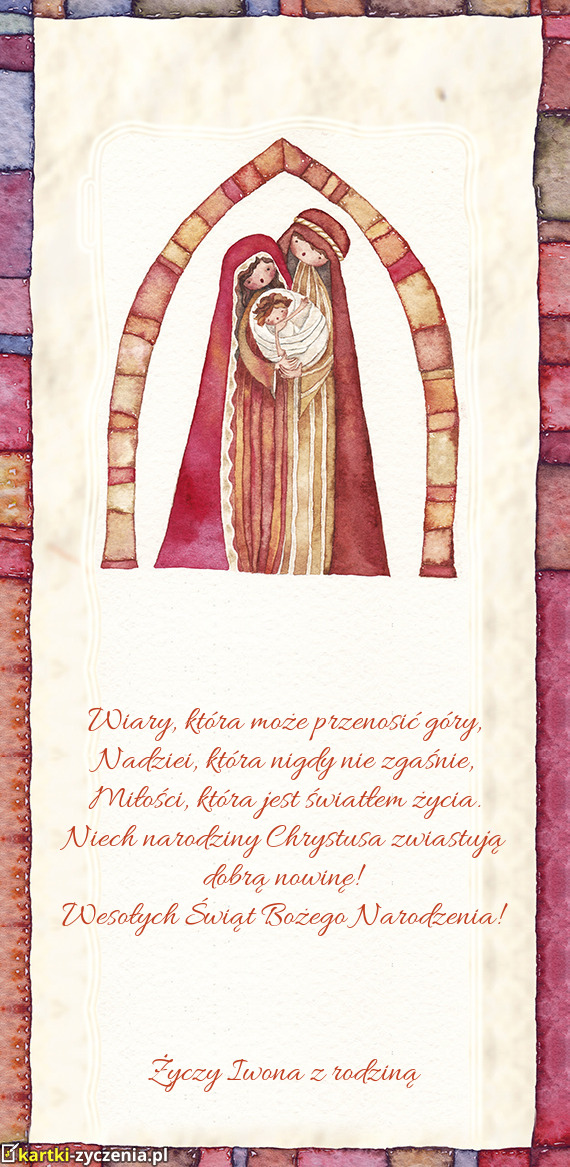 Wiary, która może przenosić góry,
Nadziei, która nigdy nie zgaśnie,
Miłości, która jest światłem życia.
Niech narodziny Chrystusa zwiastują
dobrą nowinę!
Wesołych Świąt Bożego Narodzenia!
Życzy Iwona z rodziną
kartki-zyczenia.pl